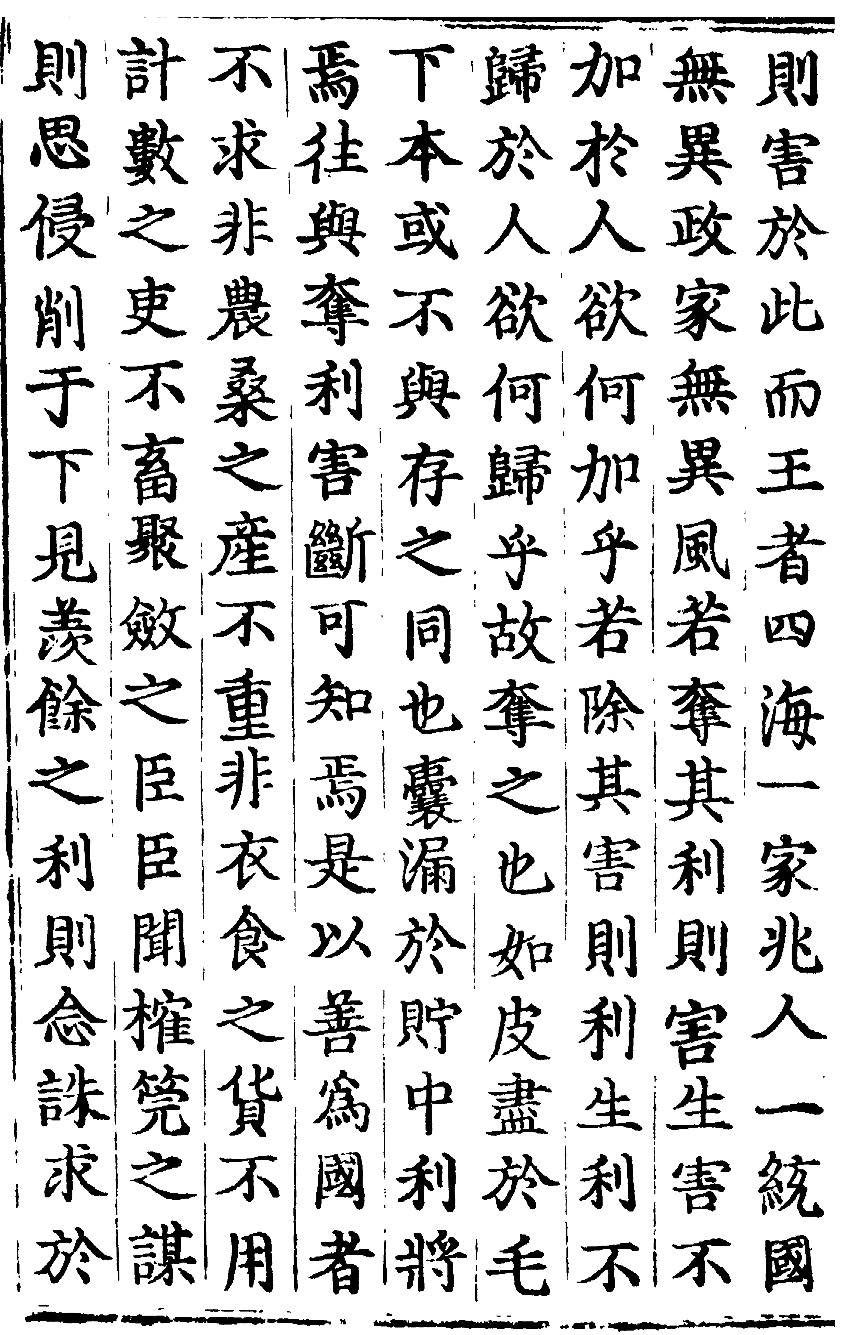 則害於此而王者四海一家兆人一統國
無異政家無異風若奪其利則害生害不
加於人欲何加乎若除其害則利生利不
歸於人欲何歸乎故奪之也如皮盡於毛
下本或不與存之同也囊漏於貯中利將
焉往與奪利害斷可知焉是以善爲國者
不求非農桑之産不重非衣食之貨不用
計數之吏不畜聚斂之臣臣聞榷筦之謀
則思侵削于下見羨餘之利則念誅求於